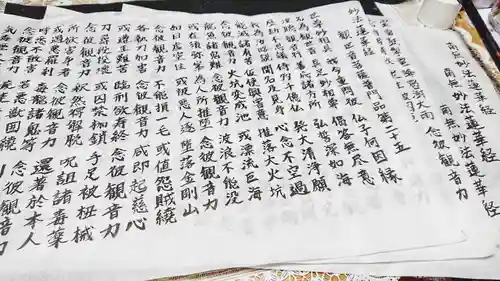 南無妙法蓮華経 南無妙法蓮華経
南無妙法蓮華経
澍大雨 念彼観音力
妙法蓮華経 観世音菩薩普門品第二十五
世尊妙相具 我今重問彼 仏子何因縁
具足妙相尊 偈答無尽意
善応諸方所 弘誓深如海
侍多千億仏 発大清浄願
我為汝略説 聞名及見身 心念不空過
能滅諸有苦 仮使興害意 推落大火坑
念彼観音力 火坑変成池 或漂流巨海
龍魚諸鬼難 念彼観音力 波浪不能没
為人所推堕 念彼観音力
如日虚空住 或被悪人逐 堕落金剛山
念彼観音力 不能損一毛 或値怨賊繞
各執刀加害 念彼観音力 咸即起慈心
或遭王難苦 臨刑欲寿終 念彼観音力
刀尋段段壊 或囚禁枷鎖 手足被杻械
念彼観音力 釈然得解脱 呪詛諸毒薬
所欲害身者 念彼観音力 還著於本人
或遇悪羅刹 毒龍諸鬼等 念彼観音力
時悉不敢害 若悪獣囲繞